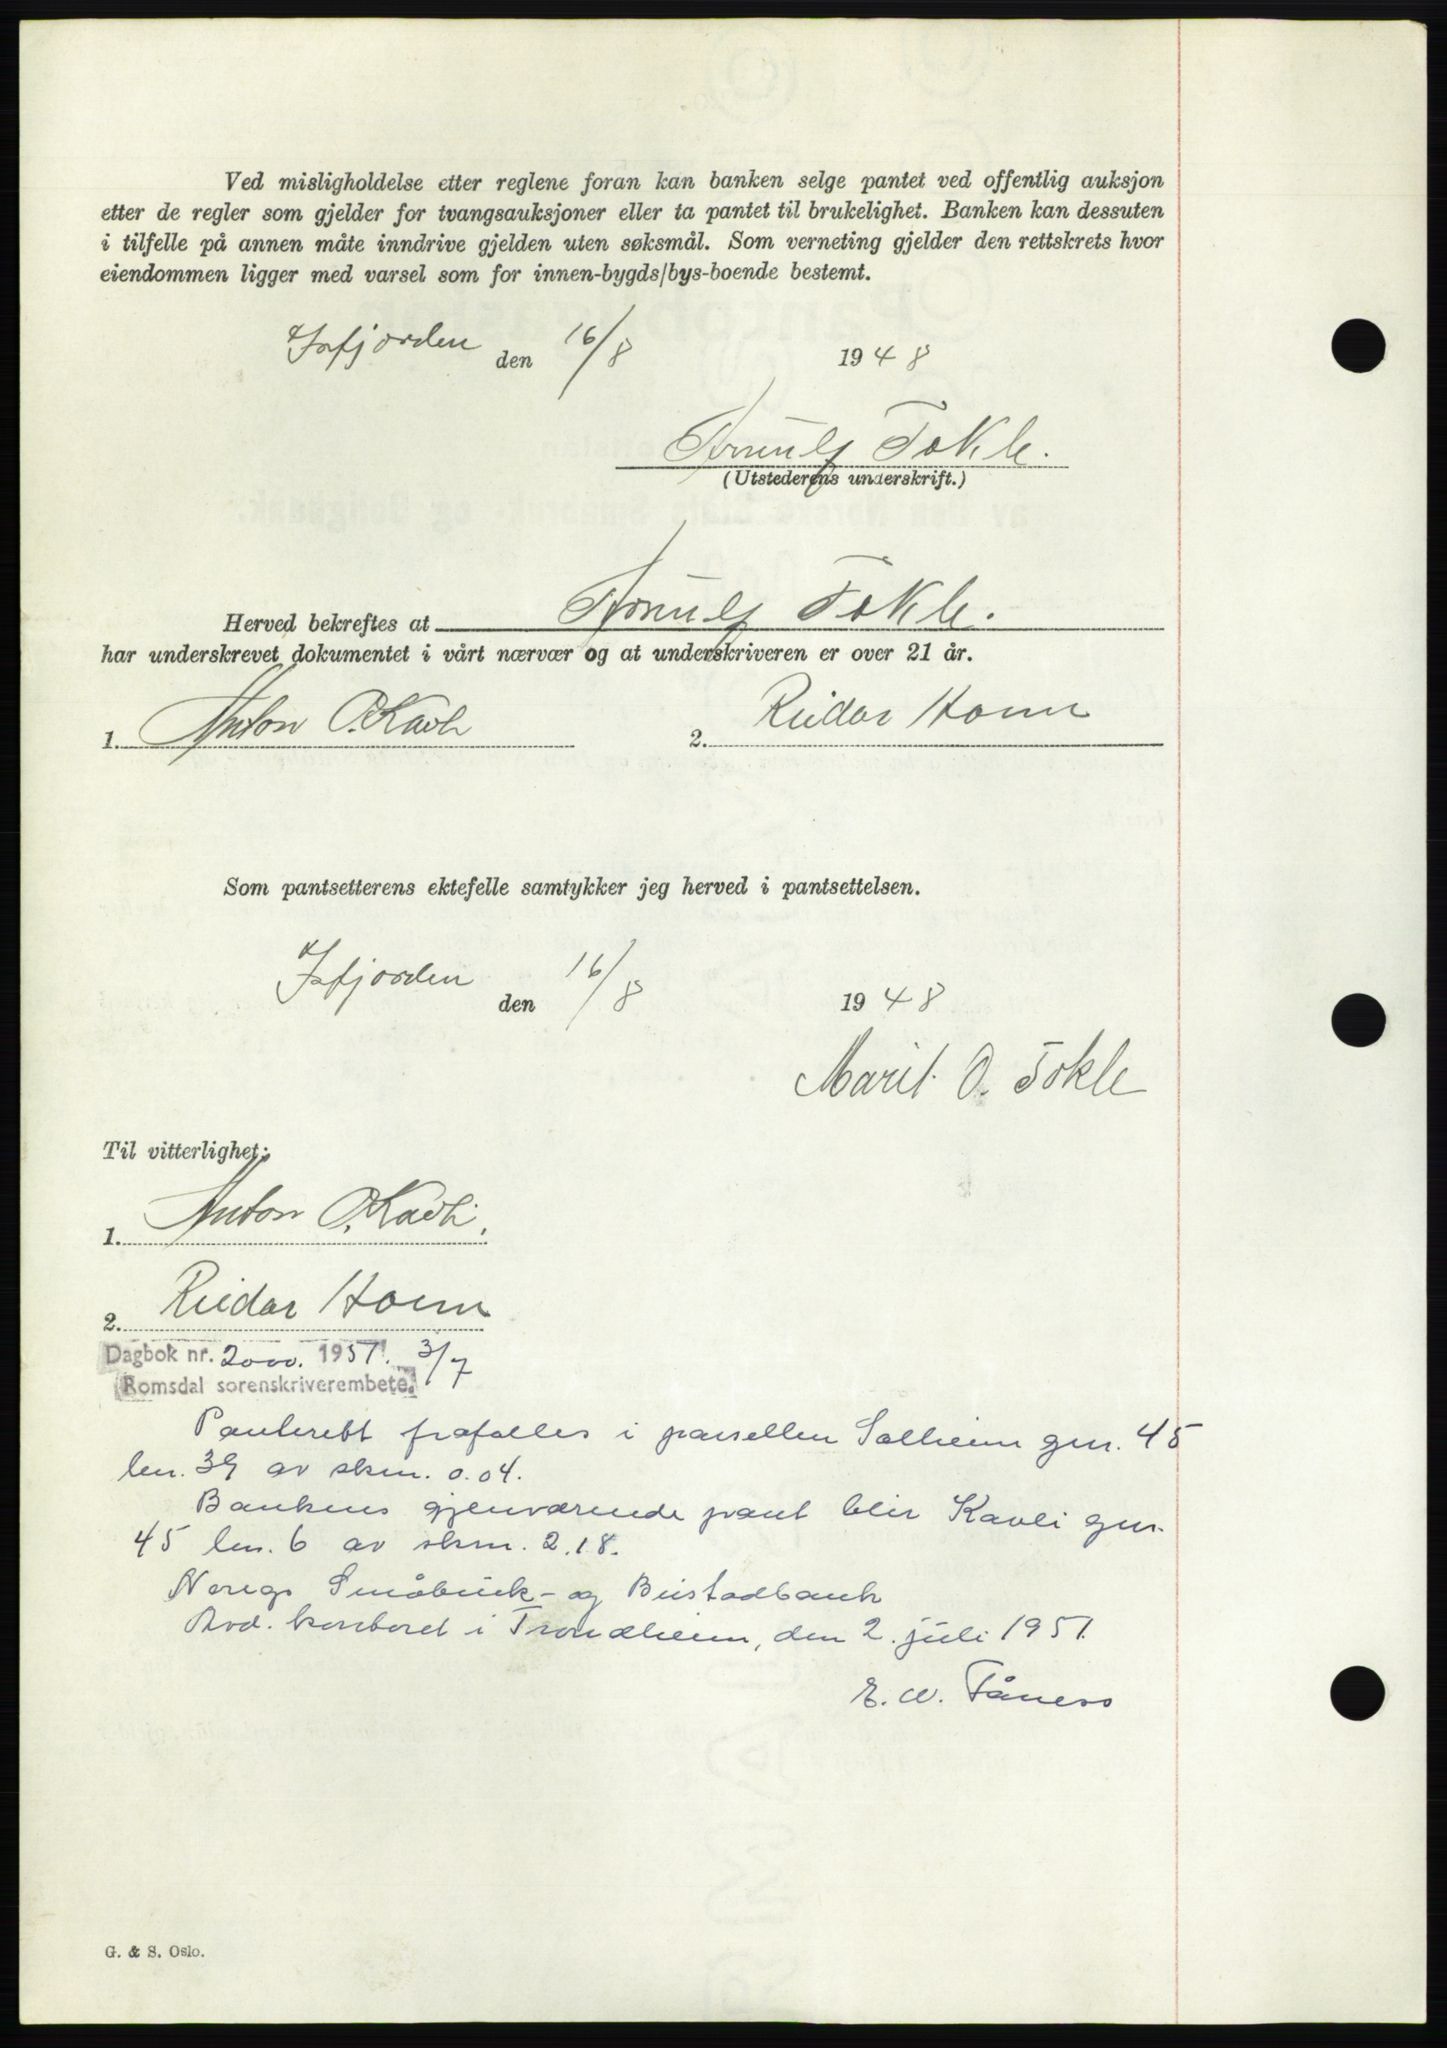 Ved misligholdelse etter reglene foran kan banken selge pantet ved offentlig auksjon
etter de regler som gjelder for tvangsauksjoner eller ta pantet til brukelighet. Banken kan dessuten
i tilfelle på annen måte inndrive gjelden uten søksmål. Som verneting gjelder den rettskrets hvor
eiendommen ligger med varsel som for innen-bygds/bys-boende bestemt.
Isfjorden den 16/8 1948
Arnulf Tokle.
(Utstederens underskrift.)
Herved bekreftes at Arnulf Tokle.
har underskrevet dokumentet i vårt nærvær og at underskriveren er over 21 år.
1. Anton O. Kavli 2. Reidar Hovm
Som pantsetterens ektefelle samtykker jeg herved i pantsettelsen.
Isfjorden den 16/8 1948
Marit O. Tokle
Til vitterlighet:
1. Anton O. Kavli.
2. Reidar
Dagbok nr. 2000. 1951. 3/7
Romsdal sorenskriverembete.
Panterett frafalles i parsellen Solheim gnr. 45
bnr. 39 av skm. 0.04.
Bankens gjenværende pant blir Kavli gnr.
45 bnr. 6 av skm. 2.18.
Noregs Småbruk- og Bustadbank
Avd. kontoret i Trondheim, den 2. juli 1951.
E. W. Tåness
G. & S. Oslo.